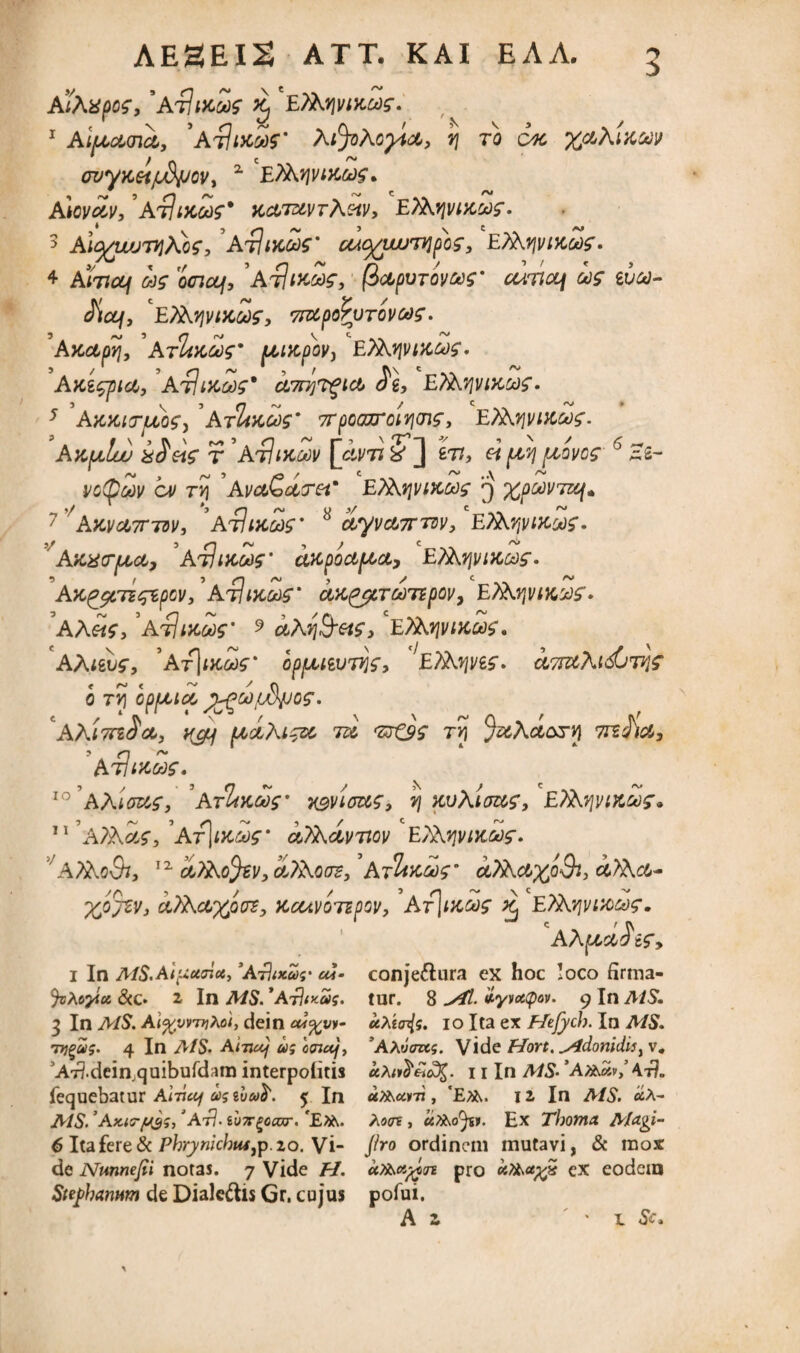 ΛΕΞΕΙΣ ΑΤΤ. ΚΑΙ ΕΛΛ. 3
Αἴλȣρος, Ἀττικῶς ϗ Ἑλληνικῶς.
¹ Αἱμασιὰ, Ἀττικῶς· λιθολογία, ἢ τὸ ἐκ χαλίκων
συγκείμϸμον, ² Ἑλληνικῶς.
Αἰονᾶν, Ἀττικῶς· καταντλεῖν, Ἑλληνικῶς.
³ Αἰχυντηλὸς, Ἀττικῶς· αἰχυντηρὸς, Ἑλληνικῶς.
⁴ Αἴτιαι ὡς ὅσιαι, Ἀττικῶς, βαρυτόνως· αἰτίαι ὡς εὐω-
δίαι, Ἑλληνικῶς, παροξυτόνως.
Ἀκαρῆ, Ἀττικῶς· μικρὸν, Ἑλληνικῶς.
Ἀκέστρια, Ἀττικῶς· ἀπήτρια δὲ, Ἑλληνικῶς.
⁵ Ἀκκισμὸς, Ἀττικῶς· προσποίησις, Ἑλληνικῶς.
Ἀκμὴν ȣδεὶς τ Ἀττικῶν [ἀντὶ τȣ] ἔτι, εἰ μὴ μόνος ⁶ Ξε-
νοφῶν ἐν τῇ Ἀναβάσει· Ἑλληνικῶς ϳ χρῶνται.
⁷ Ἄκναπτον, Ἀττικῶς· ⁸ ἄγναπτον, Ἑλληνικῶς.
Ἄκȣσμα, Ἀττικῶς· ἀκρόαμα, Ἑλληνικῶς.
Ἀκρατέστερον, Ἀττικῶς· ἀκρατώτερον, Ἑλληνικῶς.
Ἀλεῖς, Ἀττικῶς· ⁹ ἀλήθεις, Ἑλληνικῶς.
Ἁλιεὺς, Ἀττικῶς· ὁρμιευτὴς, Ἕλληνες. ἁπαλιευτὴς
ὁ τῇ ὁρμιᾷ χρώμενος.
Ἁλίπεδα, καὶ μάλιστα τὰ πρὸς τῇ θαλάσσῃ πεδία,
Ἀττικῶς.
¹⁰ Ἀλίσας, Ἀττικῶς· κονίσας, ἢ κυλίσας, Ἑλληνικῶς.
¹¹ Ἀλλᾶς, Ἀττικῶς· ἀλλάντιον Ἑλληνικῶς.
Ἄλλοθι, ¹² ἄλλοθεν, ἄλλοσε, Ἀττικῶς· ἀλλαχόθι, ἀλλα-
χόθεν, ἀλλαχόσε, καινότερον, Ἀττικῶς ϗ Ἑλληνικῶς.
Ἁλμάδες,
1 In MS. Αἱμασία, Ἀττικῶς· αἱ-
θολογία &c. 2 In MS. Ἀττικῶς.
3 In MS. Αἰχυντηλοὶ, dein αἰχυν-
τηρῶς. 4 In MS. Αἴτιαι ὡς ὅσιαι,
Ἀττ. dein, quibusdam interpositis
sequebatur Αἰτίαι ὡς εὐωδ. 5 In
MS. Ἀκισμὸς, Ἀττ. εὐπροσπ. Ἑλλ.
6 Ita fere & Phrynichus, p. 20. Vi-
de Nunnesii notas. 7 Vide H.
Stephanum de Dialectis Gr. cujus
conjectura ex hoc loco firma-
tur. 8 Al. ἄγναφον. 9 In MS.
ἀλέσῃς. 10 Ita ex Hesych. In MS.
Ἀλύσας. Vide Hort. Adonidis, v.
ἀλινδεῖσθ. 11 In MS. Ἀλλᾶν, Ἀττ.
ἀλλαντὶ, Ἑλλ. 12 In MS. ἄλ-
λοσε, ἄλλοθεν. Ex Thoma Magi-
stro ordinem mutavi, & mox
ἀλλαχόσε pro ἀλλαχȣ ex eodem
posui.
A 2 1 Sc.